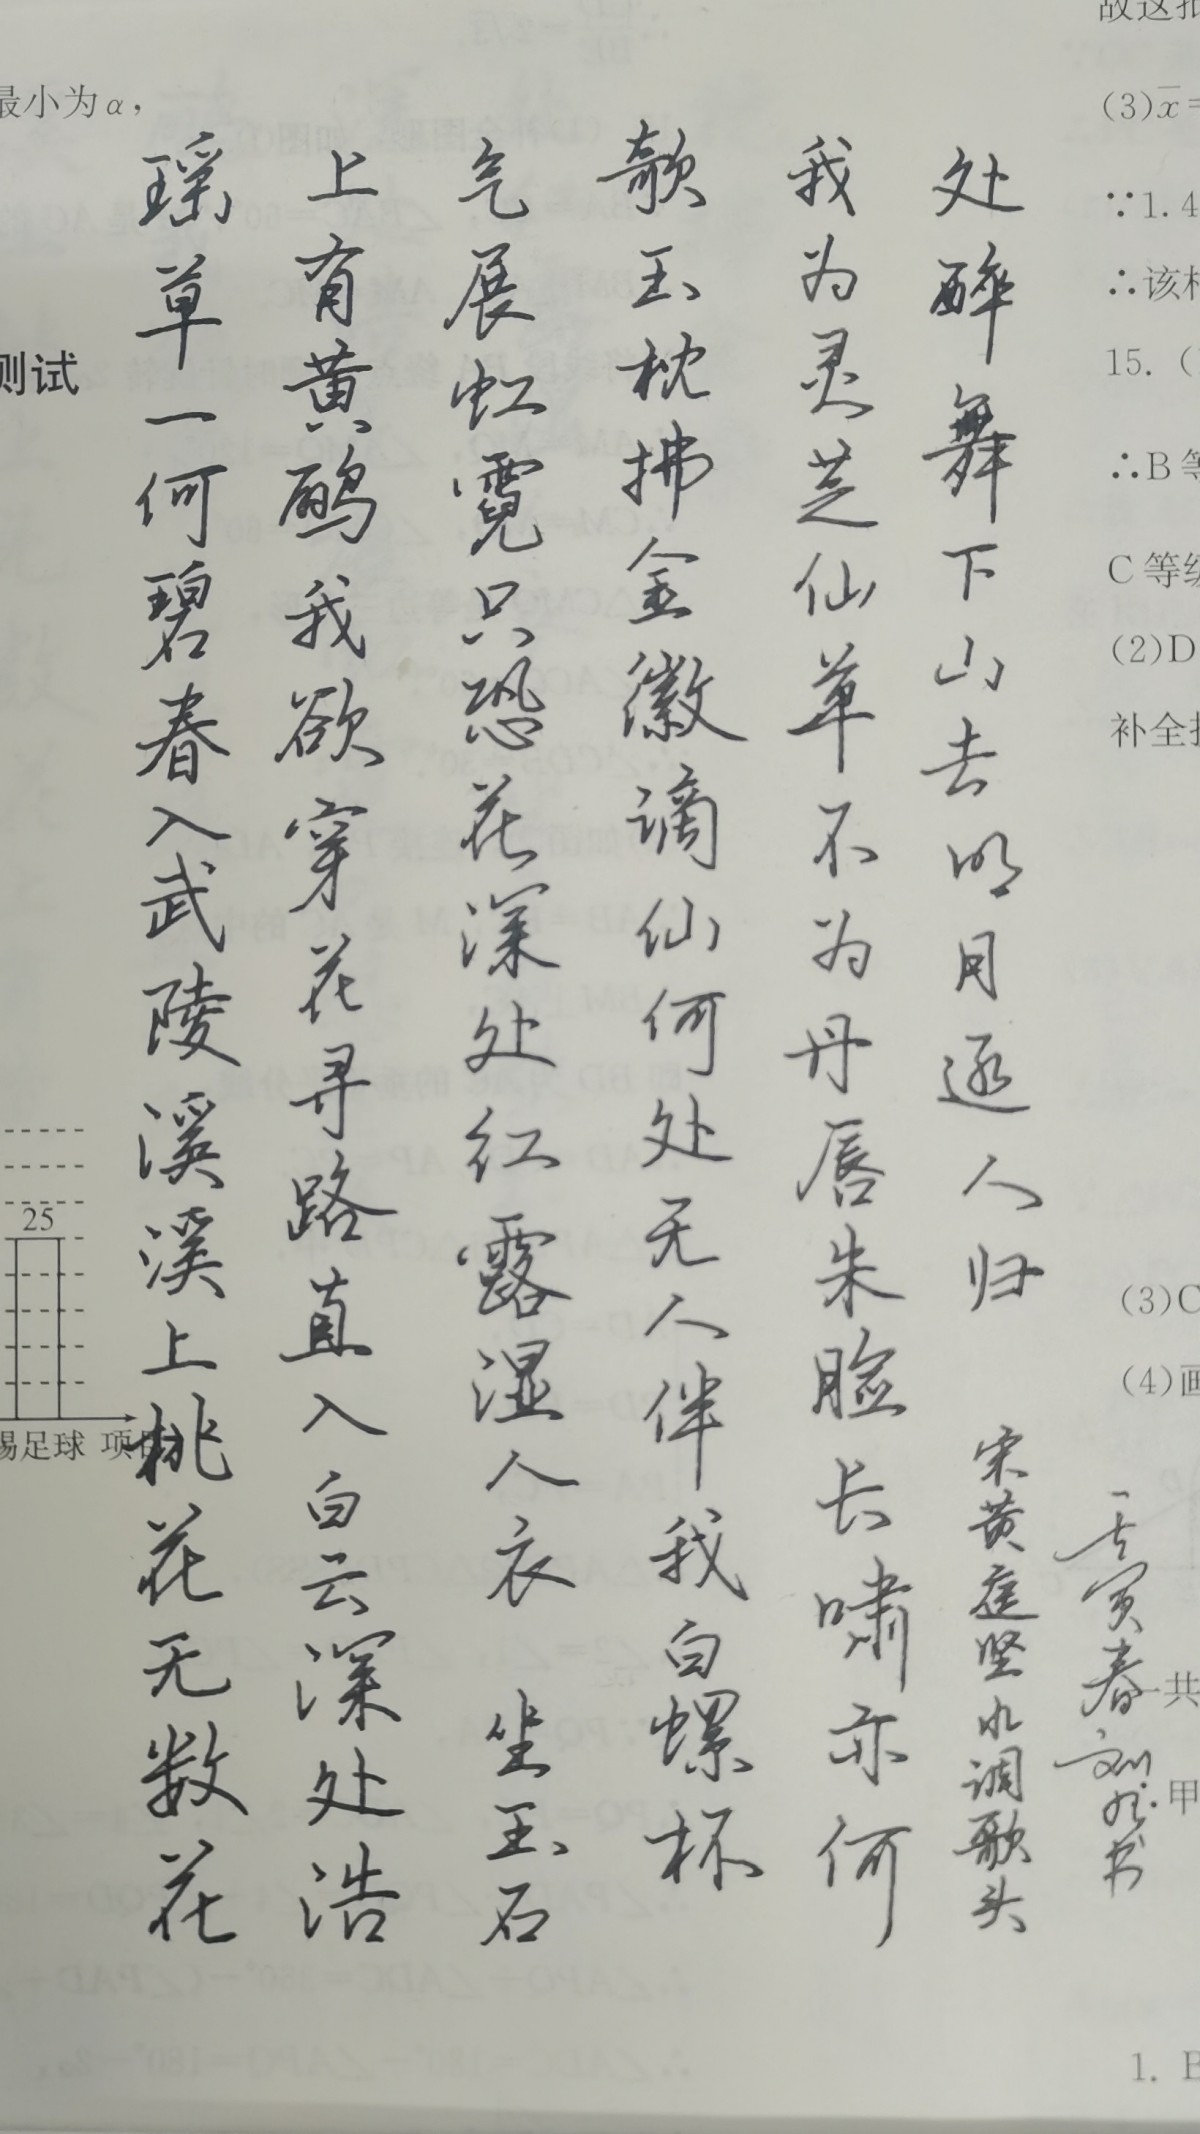 最小为α，
测试
25
踢足球 项目
瑶草一何碧春入武陵溪溪上桃花无数花
上有黄鹂我欲穿花寻路直入白云深处浩
气展虹霓只恐花深处红露湿人衣坐玉石
欹玉枕拂金徽谪仙何处无人伴我白螺杯
我为灵芝仙草不为丹唇朱脸长啸亦何
处醉舞下山去明月逐人归
宋黄庭坚水调歌头
壬寅春书
故这批
(3)x̄=
∵1.4
∴该
15.(
∴B等
C等级
(2)D
补全
(3)C
(4)画
一共
甲
1. B